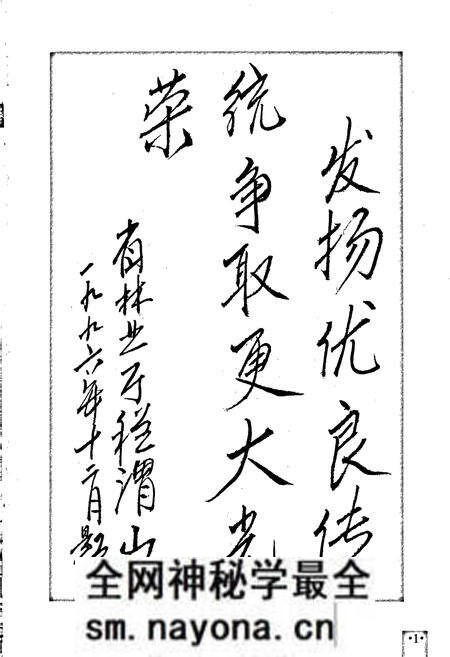 发扬优良传
统争取更大光
荣
省林业厅程渭山
一九九六年十二月题
全网神秘学最全
sm.nayona.cn
·1·